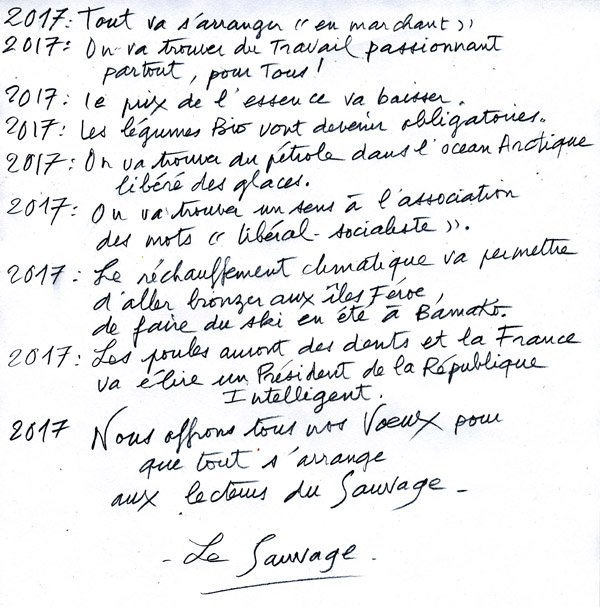 2017: Tout va s'arranger « en marchant »
2017: On va trouver du Travail passionnant
partout, pour Tous !
2017: le prix de l'essence va baisser.
2017: Les légumes Bio vont devenir obligatoires.
2017: On va trouver du pétrole dans l'ocean Arctique
libéré des glaces.
2017: On va trouver un sens à l'association
des mots « libéral-socialiste ».
2017: Le réchauffement climatique va permettre
d'aller bronzer aux îles Féroe,
de faire du ski en été à Bamako.
2017: Les poules auront des dents et la France
va élire un Président de la République
Intelligent.
2017 Nous offrons tous nos Voeux pour
que tout s'arrange
aux lecteurs du Sauvage -
- Le Sauvage.